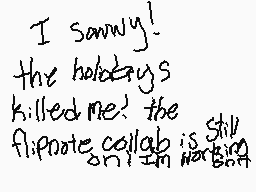 I sowwy!
the holodays
killed me! the
flipnote collab is still
on! Im working
on it